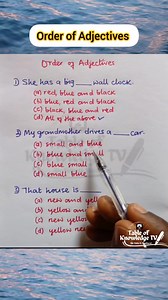 Order of Adjectives
Order of Adjectives
1) She has a big ____ wall clock.
(a) red, blue and black
(b) blue, red and black
(c) black, blue and red
(d) All of the above ✓
2) My grandmother drives a ____ car.
(a) small and blue
(b) blue and small
(c) blue small
(d) small blue
3) That house is ____
(a) new and
(b) yellow
(c) new
(d) yellow
Table of
Knowledge TV